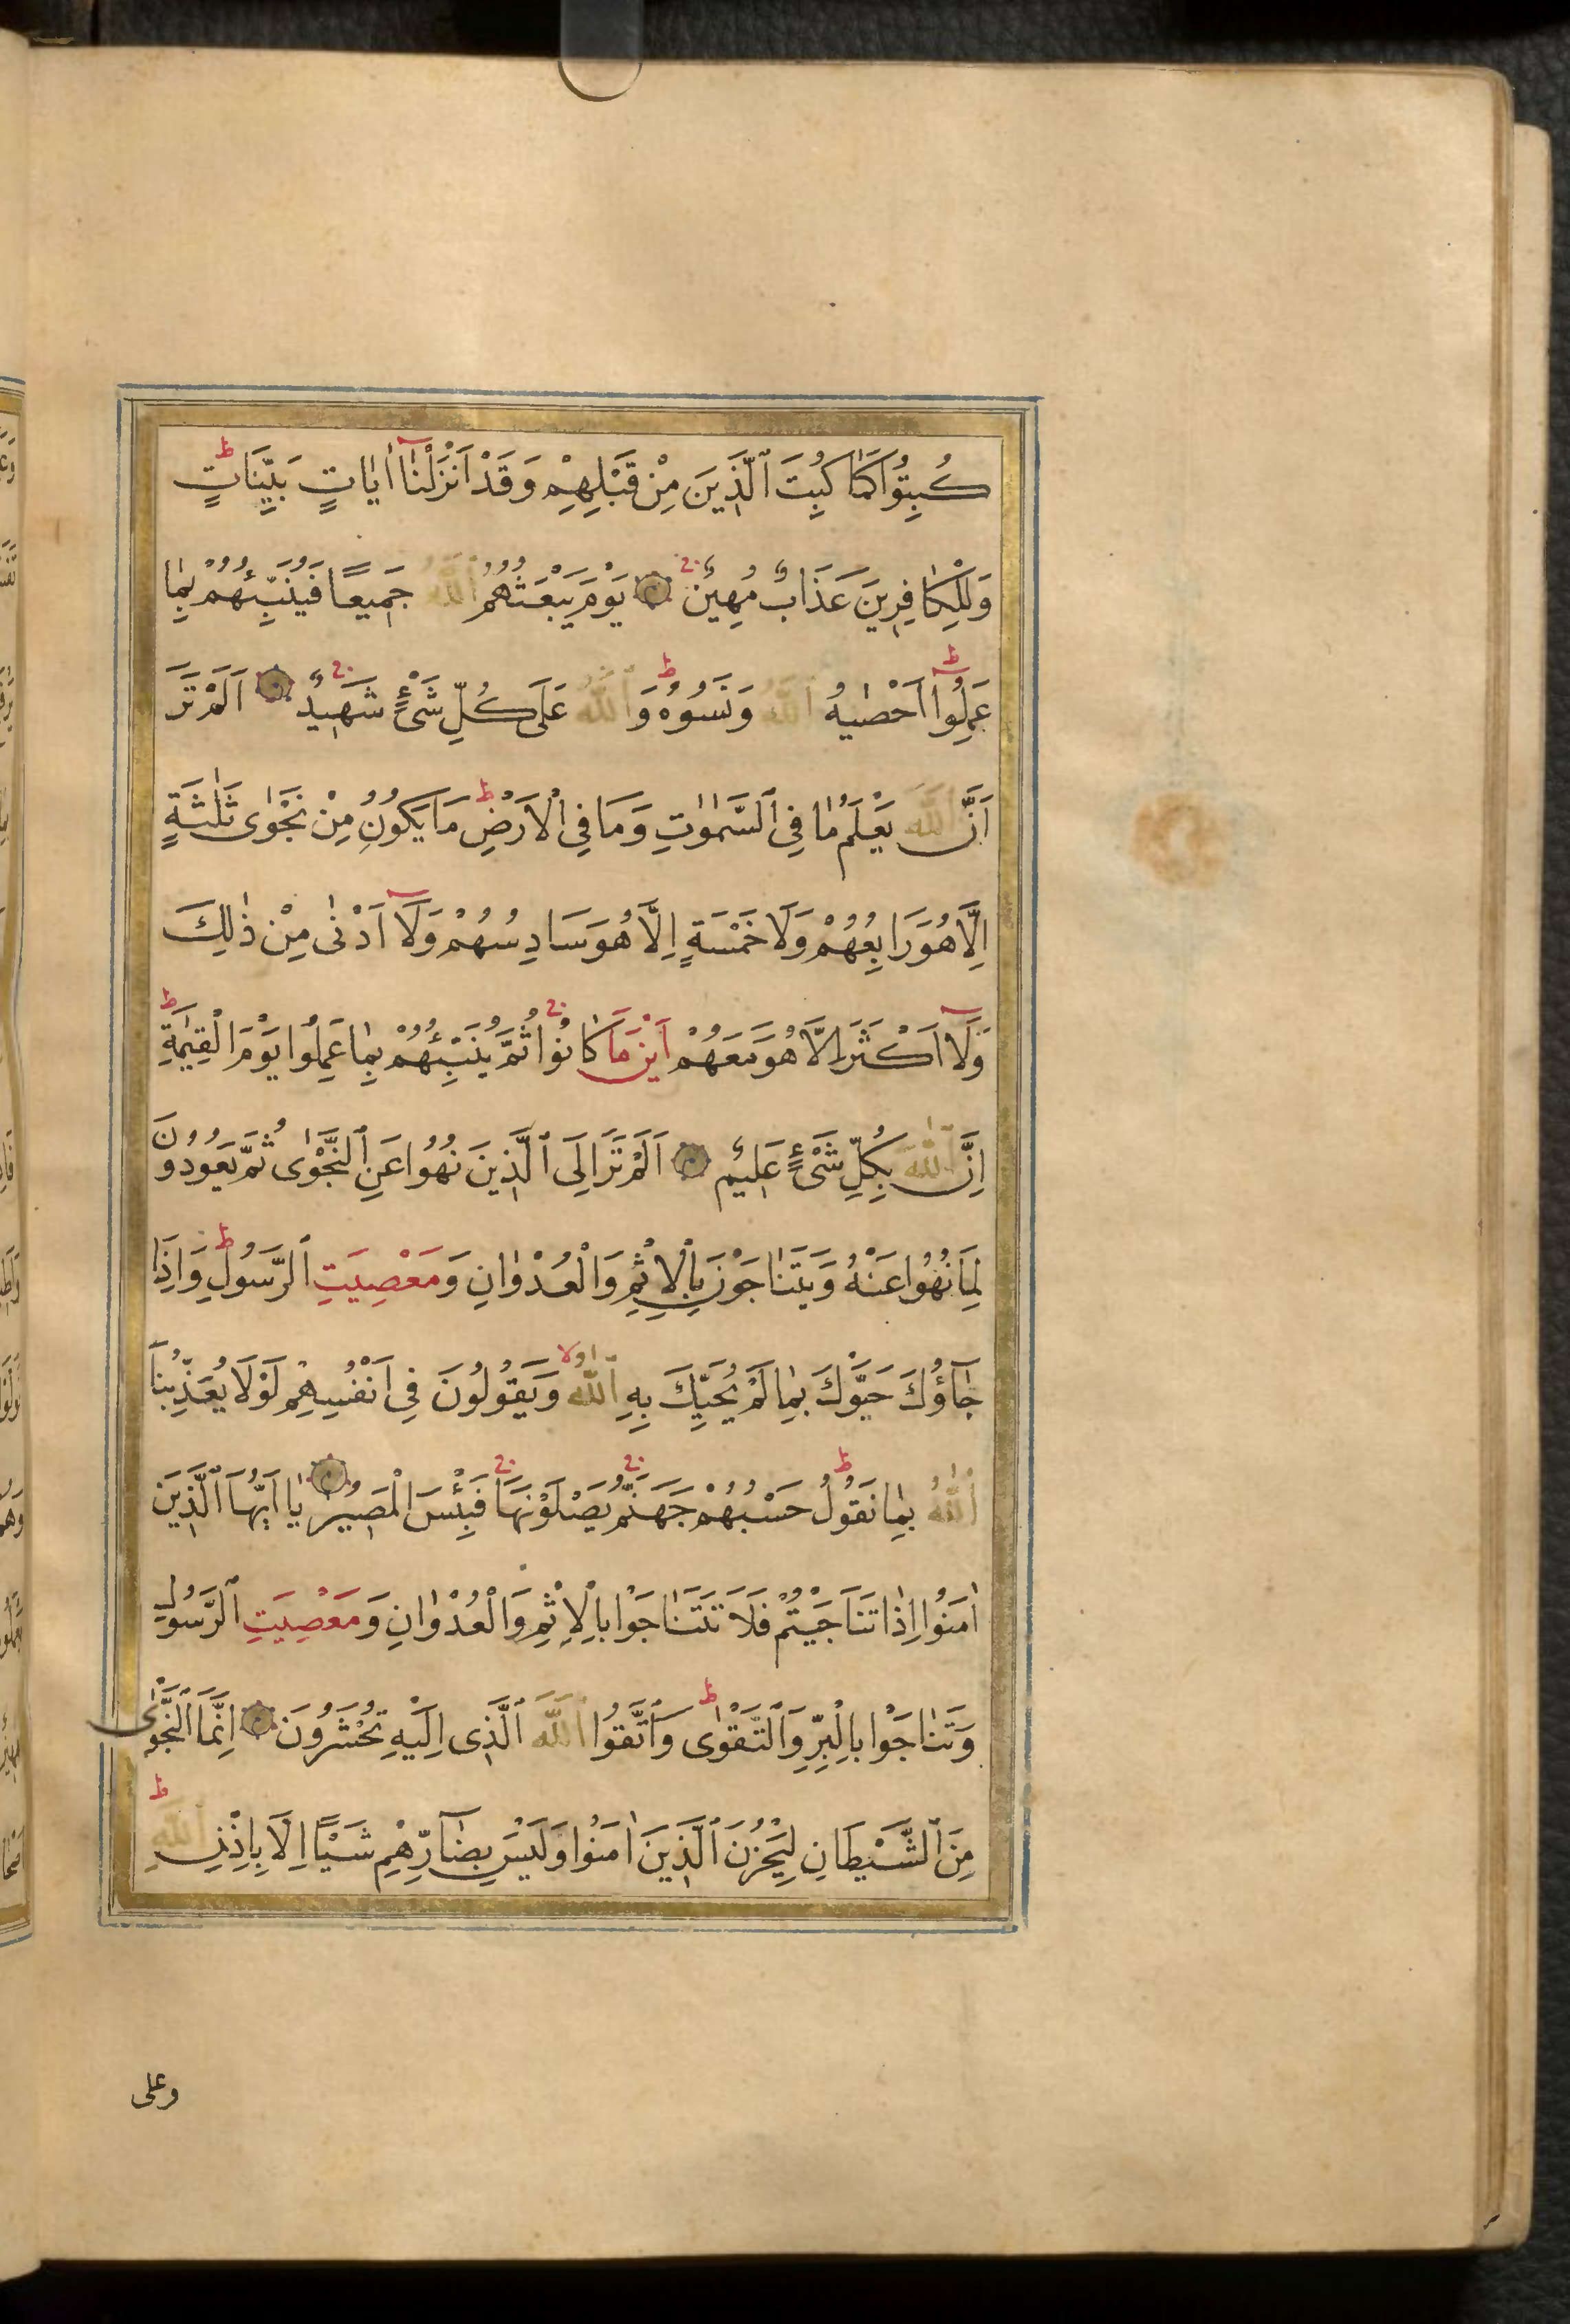 كُبِتُوا كَمَا كُبِتَ ٱلَّذِينَ مِنْ قَبْلِهِمْ وَقَدْ اَنْزَلْنَٓا اٰيَاتٍ بَيِّنَاتٍ ط
وَلِلْكَافِرِينَ عَذَابٌ مُهِينٌ ج يَوْمَ يَبْعَثُهُمُ ٱللّٰهُ جَمِيعًا فَيُنَبِّئُهُمْ بِمَا
عَمِلُوا ط اَحْصٰيهُ ٱللّٰهُ وَنَسُوهُ ط وَٱللّٰهُ عَلَى كُلِّ شَىْءٍ شَهِيدٌ ج اَلَمْ تَرَ
اَنَّ ٱللّٰهَ يَعْلَمُ مَا فِى ٱلسَّمٰوٰتِ وَمَا فِى الْاَرْضِ ط مَا يَكُونُ مِنْ نَجْوٰى ثَلٰثَةٍ
اِلَّا هُوَ رَابِعُهُمْ وَلَا خَمْسَةٍ اِلَّا هُوَ سَادِسُهُمْ وَلَٓا اَدْنٰى مِنْ ذٰلِكَ
وَلَٓا اَكْثَرَ اِلَّا هُوَ مَعَهُمْ اَيْنَ مَا كَانُوا ج ثُمَّ يُنَبِّئُهُمْ بِمَا عَمِلُوا يَوْمَ الْقِيٰمَةِ ط
اِنَّ ٱللّٰهَ بِكُلِّ شَىْءٍ عَلِيمٌ اَلَمْ تَرَ اِلَى ٱلَّذِينَ نُهُوا عَنِ ٱلنَّجْوٰى ثُمَّ يَعُودُونَ
لِمَا نُهُوا عَنْهُ وَيَتَنَاجَوْنَ بِالْاِثْمِ وَالْعُدْوٰانِ وَمَعْصِيَتِ ٱلرَّسُولِ ط وَاِذَا
جَٓاؤُكَ حَيَّوْكَ بِمَا لَمْ يُحَيِّكَ بِهِ ٱللّٰهُ لا وَيَقُولُونَ فِى اَنْفُسِهِمْ لَوْلَا يُعَذِّبُنَا
ٱللّٰهُ بِمَا نَقُولُ ط حَسْبُهُمْ جَهَنَّمُ ج يَصْلَوْنَهَا ج فَبِئْسَ الْمَصِيرُ يَا اَيُّهَا ٱلَّذِينَ
اٰمَنُوا اِذَا تَنَاجَيْتُمْ فَلَا تَتَنَاجَوْا بِالْاِثْمِ وَالْعُدْوٰانِ وَمَعْصِيَتِ ٱلرَّسُولِ
وَتَنَاجَوْا بِالْبِرِّ وَٱلتَّقْوٰى ط وَٱتَّقُوا ٱللّٰهَ ٱلَّذِى اِلَيْهِ تُحْشَرُونَ اِنَّمَا ٱلنَّجْوٰى
مِنَ ٱلشَّيْطَانِ لِيَحْزُنَ ٱلَّذِينَ اٰمَنُوا وَلَيْسَ بِضَٓارِّهِمْ شَيْئًا اِلَّا بِاِذْنِ ٱللّٰهِ ط
وعلى